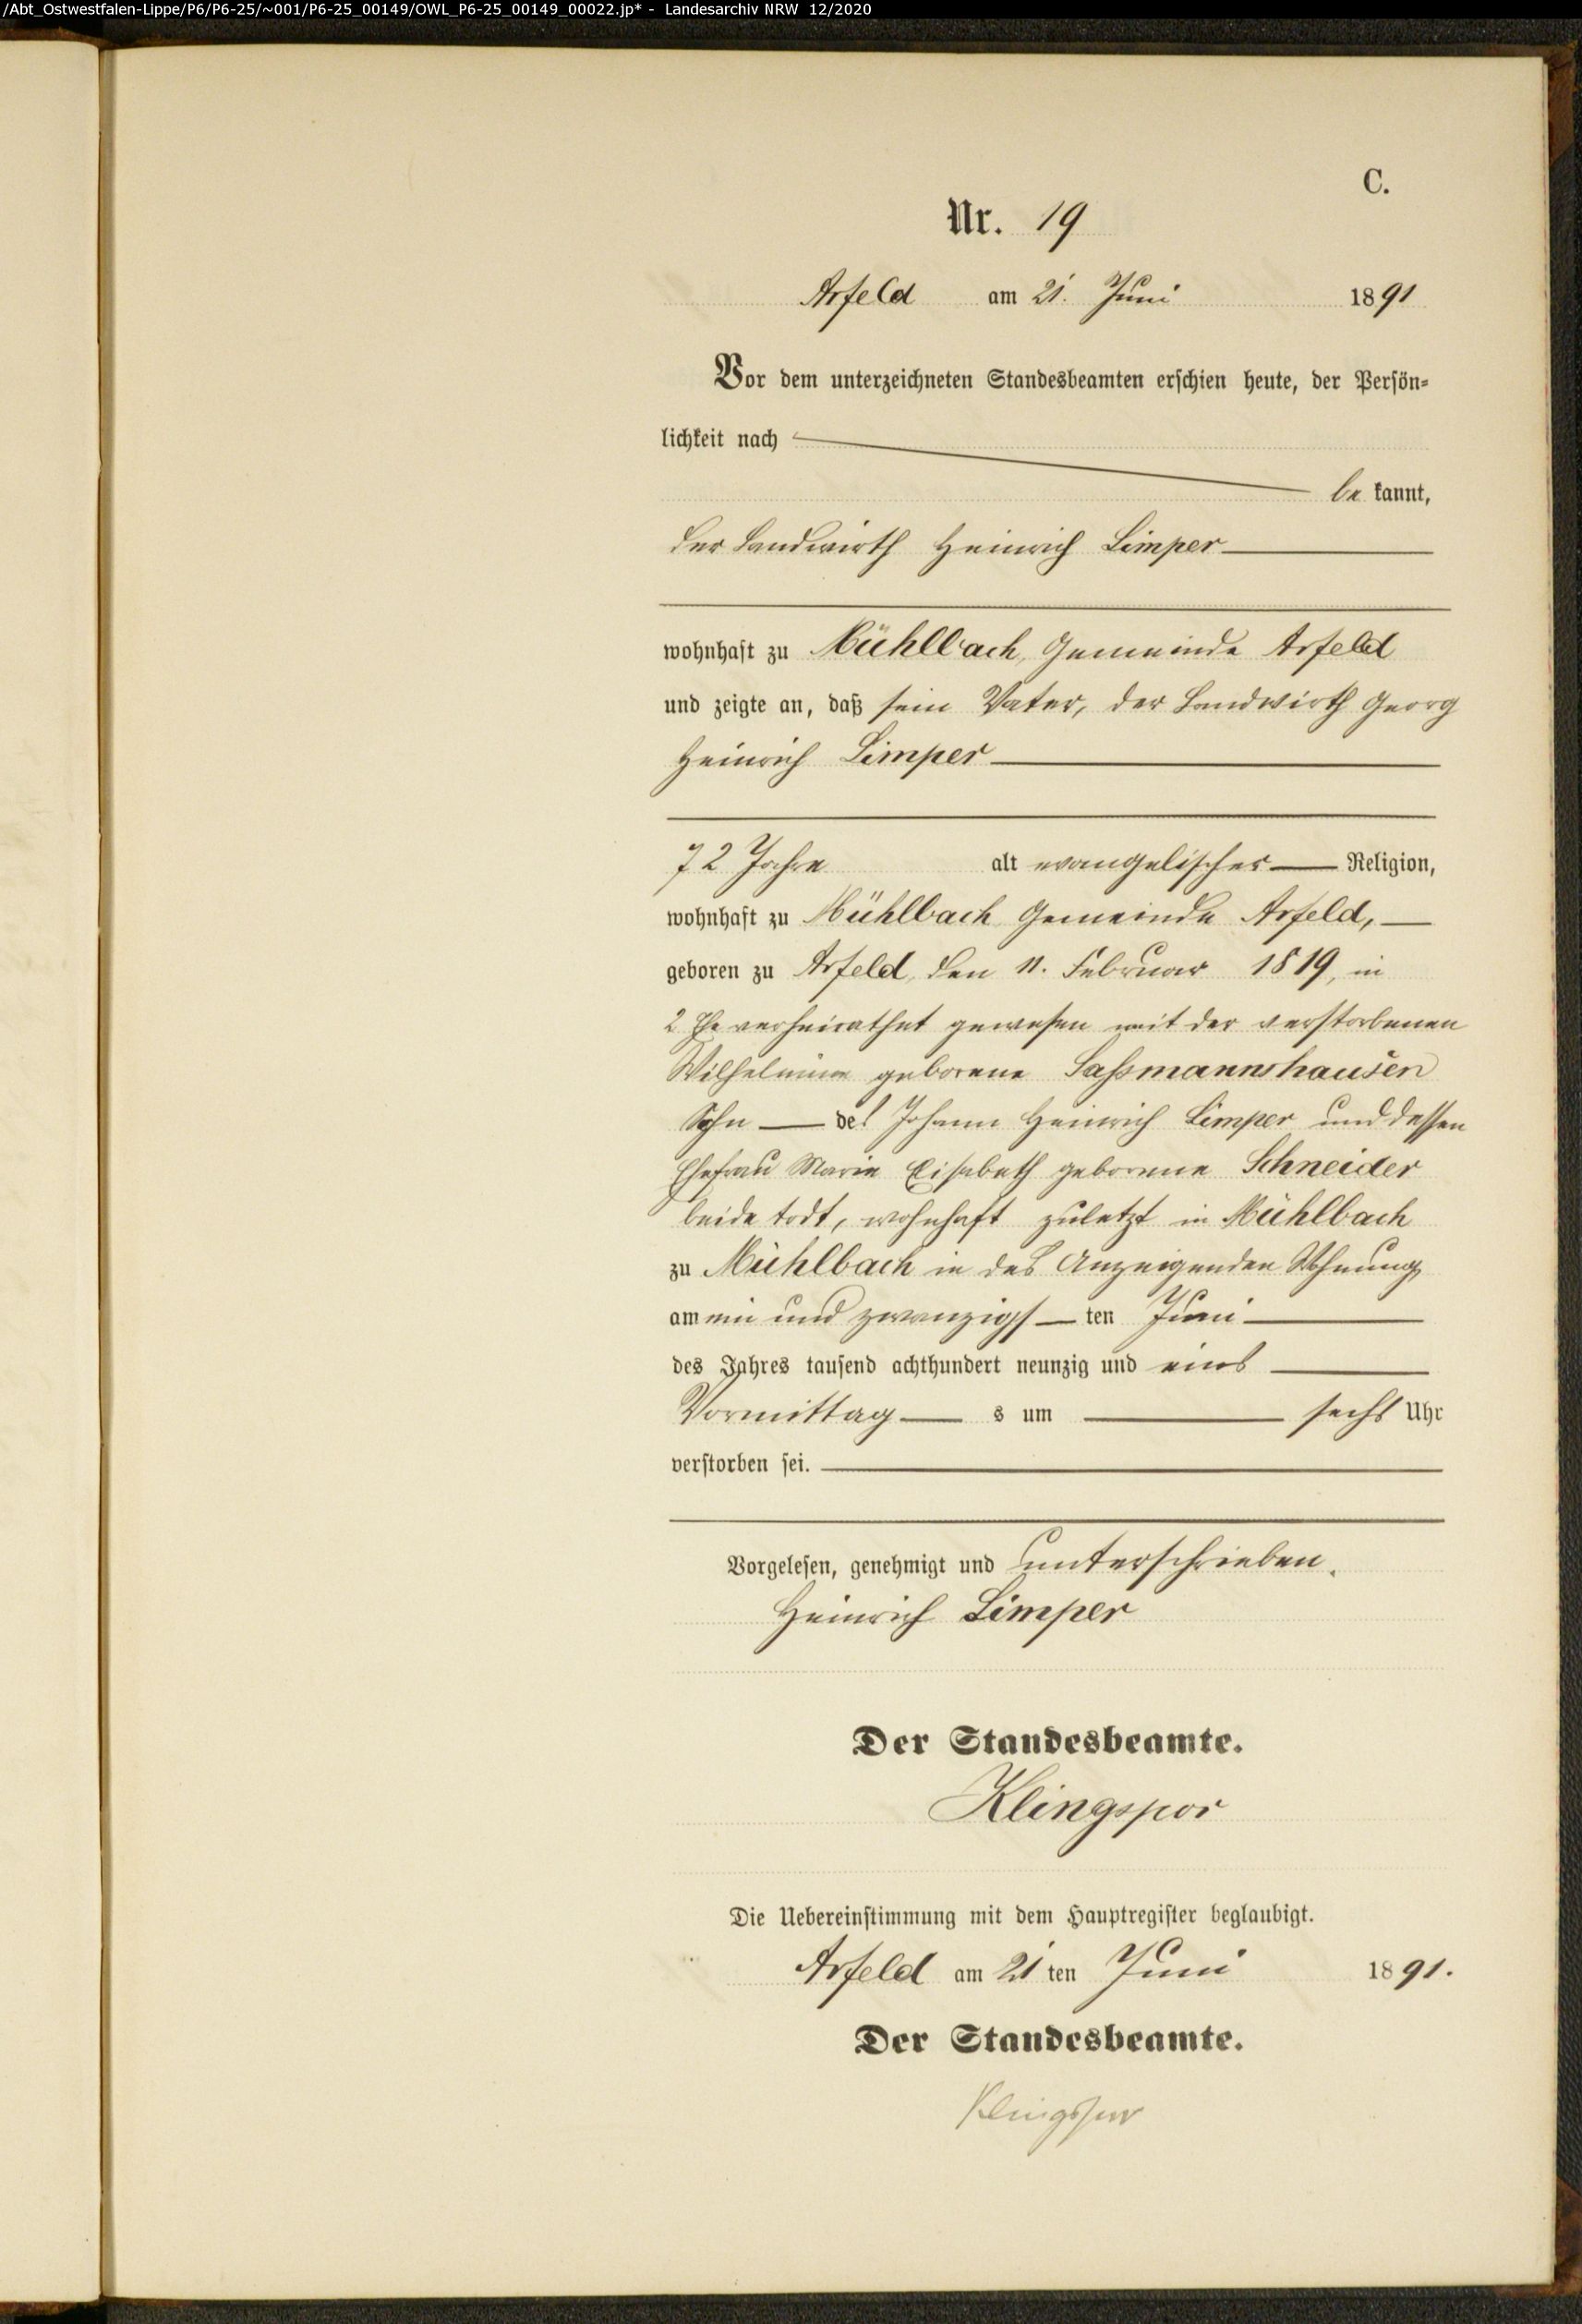 /Abt_Ostwestfalen-Lippe/P6/P6-25/~001/P6-25_00149/OWL_P6-25_00149_00022.jp* - Landesarchiv NRW 12/2020
C.
Nr. 19
Arfeld am 21. Juni 1891
Vor dem unterzeichneten Standesbeamten erschien heute, der Persön-
lichkeit nach
be kannt,
der Landwirth Heinrich Limper
wohnhaft zu Mühlbach, Gemeinde Arfeld
und zeigte an, daß sein Vater, der Landwirth Georg
Heinrich Limper
72 Jahre alt evangelischer Religion,
wohnhaft zu Mühlbach Gemeinde Arfeld,
geboren zu Arfeld, den 11. Februar 1819, in
2 Ehe verheirathet gewesen mit der verstorbenen
Wilhelmine geborene Saßmannshausen
Sohn des Johann Heinrich Limper und dessen
Ehefrau Marie Elisabeth geborene Schneider
beide todt, wohnhaft zuletzt in Mühlbach
zu Mühlbach in des Anzeigenden Wohnung
am ein und zwanzigs ten Juni
des Jahres tausend achthundert neunzig und eins
Vormittag s um sechs Uhr
verstorben sei.
Vorgelesen, genehmigt und unterschrieben.
Heinrich Limper
Der Standesbeamte.
Klingspor
Die Uebereinstimmung mit dem Hauptregister beglaubigt.
Arfeld am 21 ten Juni 1891.
Der Standesbeamte.
Klingspor